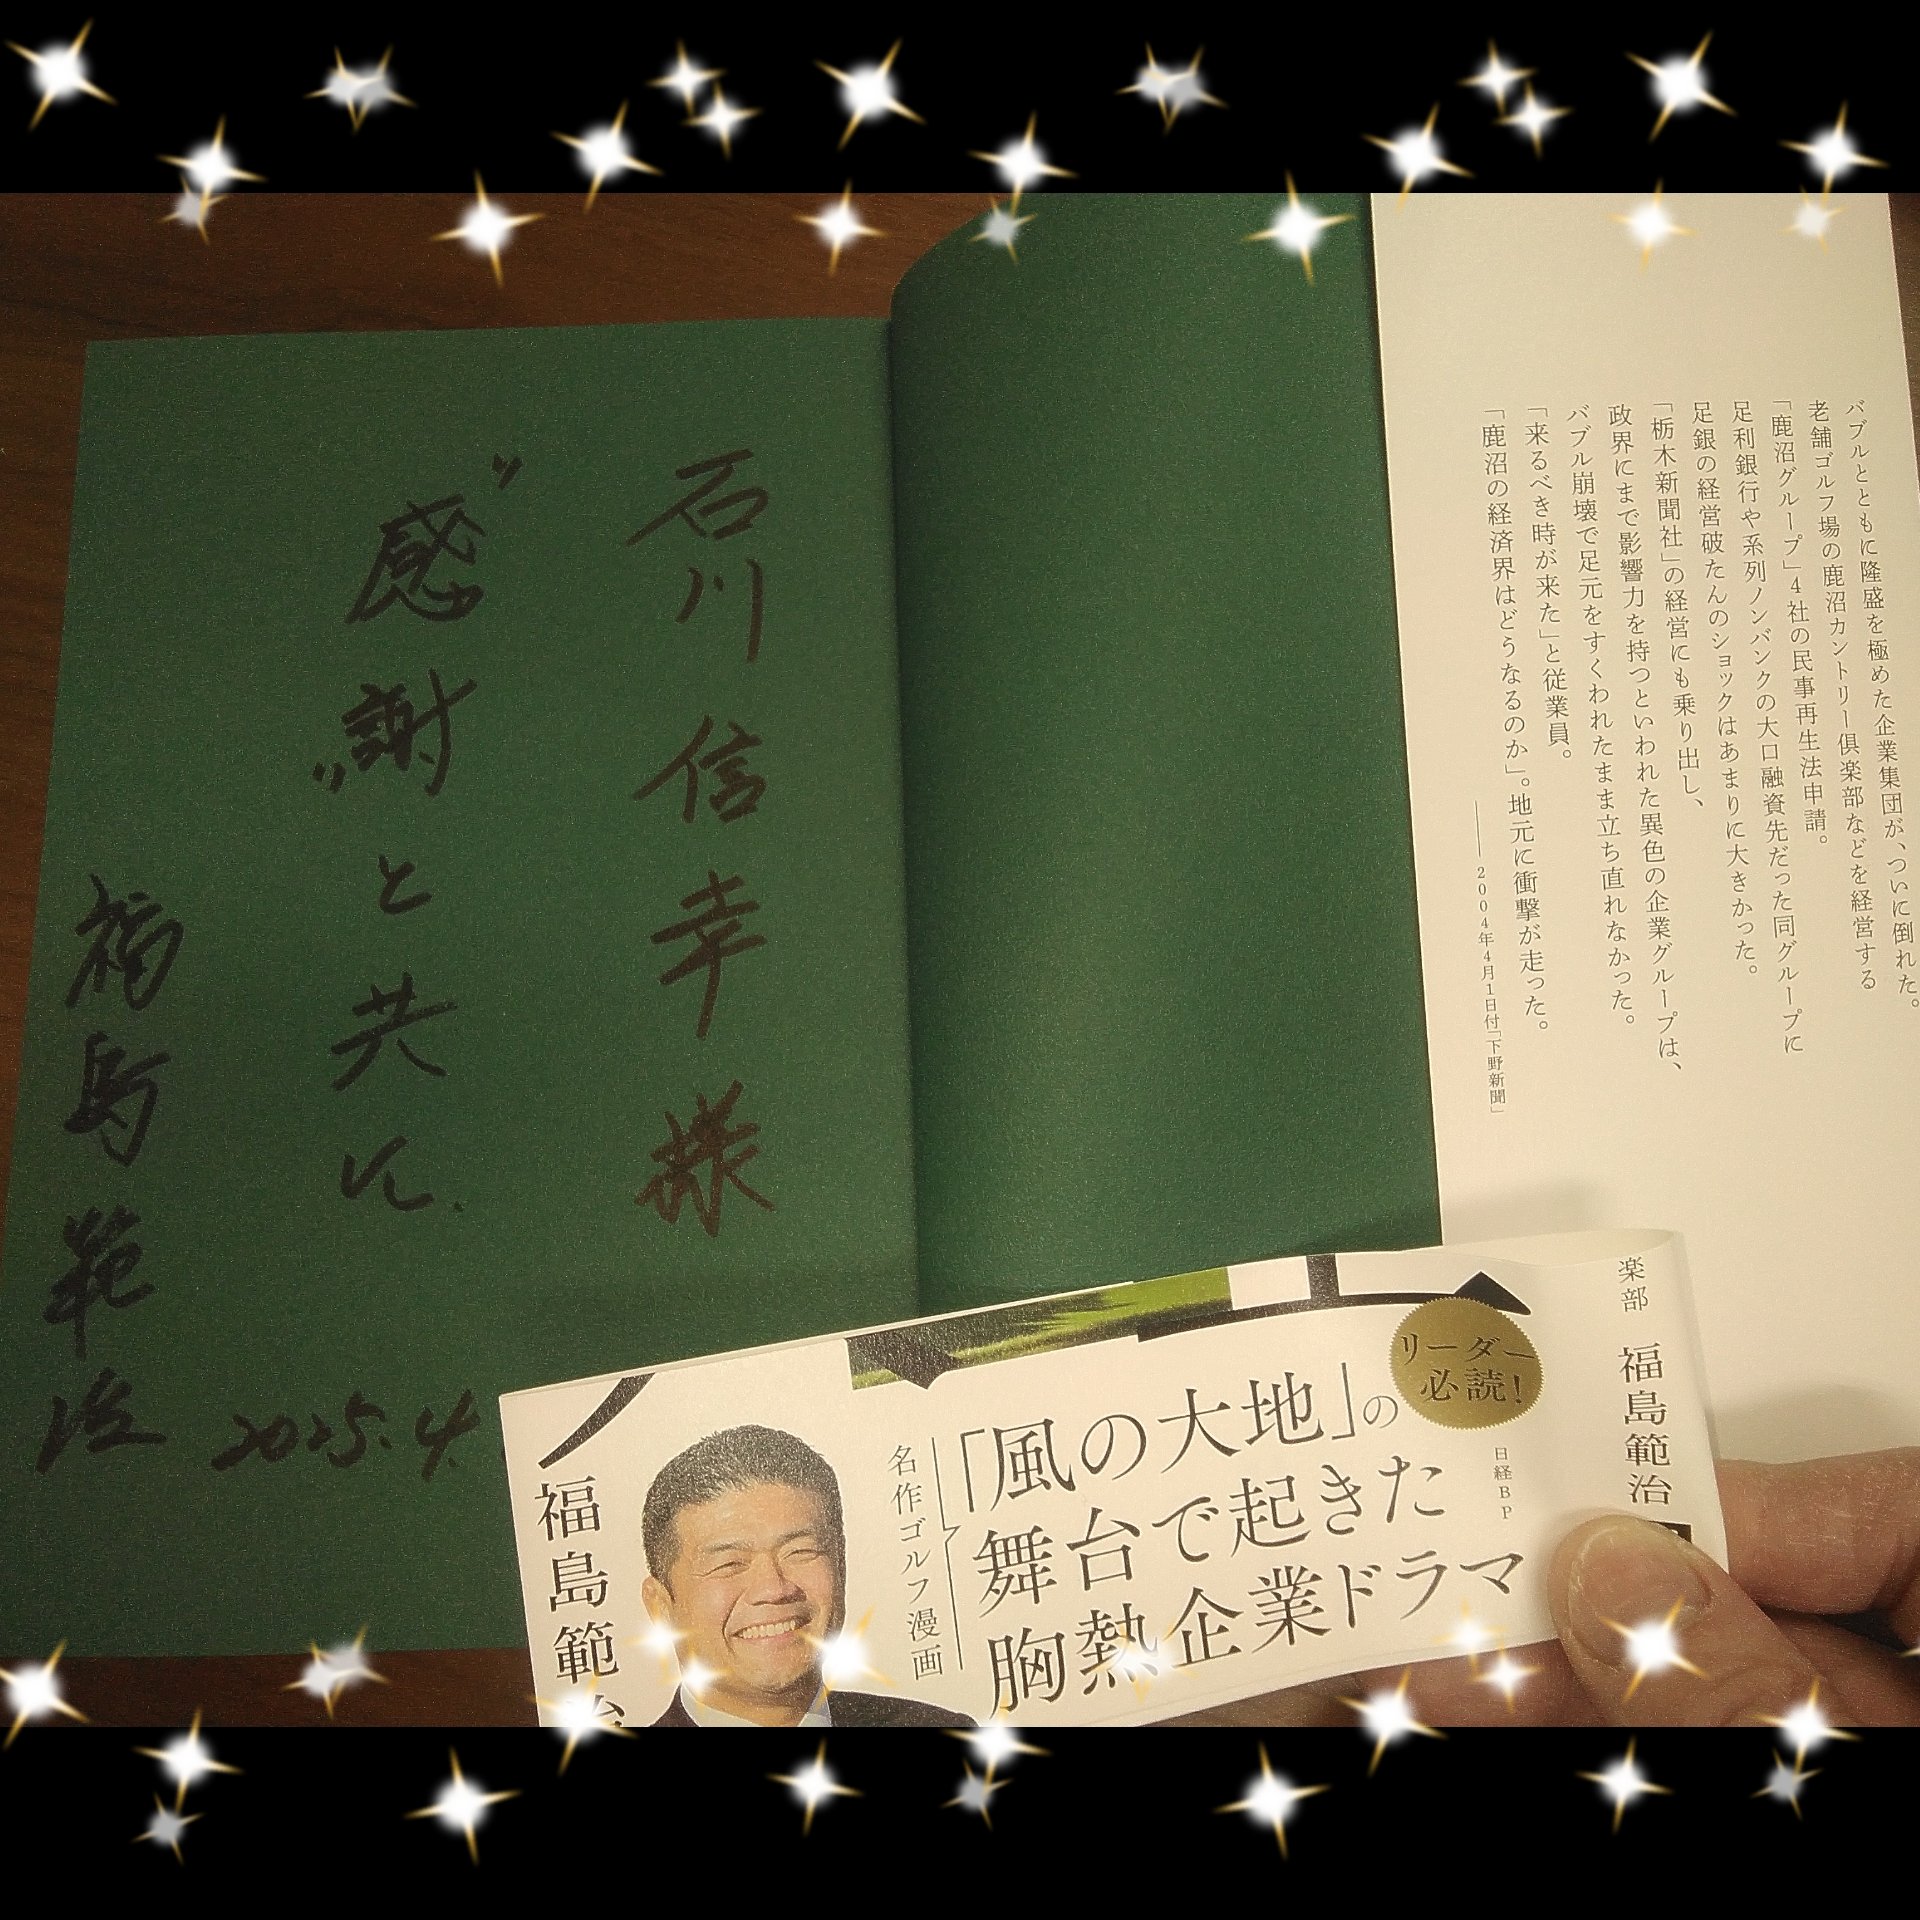 バブルとともに隆盛を極めた企業集団が、ついに倒れた。
老舗ゴルフ場の鹿沼カントリー倶楽部などを経営する
「鹿沼グループ」4社の民事再生法申請。
足利銀行や系列ノンバンクの大口融資先だった同グループに
足銀の経営破たんのショックはあまりに大きかった。
「栃木新聞社」の経営にも乗り出し、
政界にまで影響力を持つといわれた異色の企業グループは、
バブル崩壊で足元をすくわれたまま立ち直れなかった。
「来るべき時が来た」と従業員。
「鹿沼の経済界はどうなるのか」。地元に衝撃が走った。
――2004年4月1日付「下野新聞」
石川信幸様
"感謝"と共に.
福島範治
2025.4.
楽部 福島範治
リーダー
必読!
日経BP
「風の大地」の
舞台で起きた
胸熱企業ドラマ
名作ゴルフ漫画
福島範治